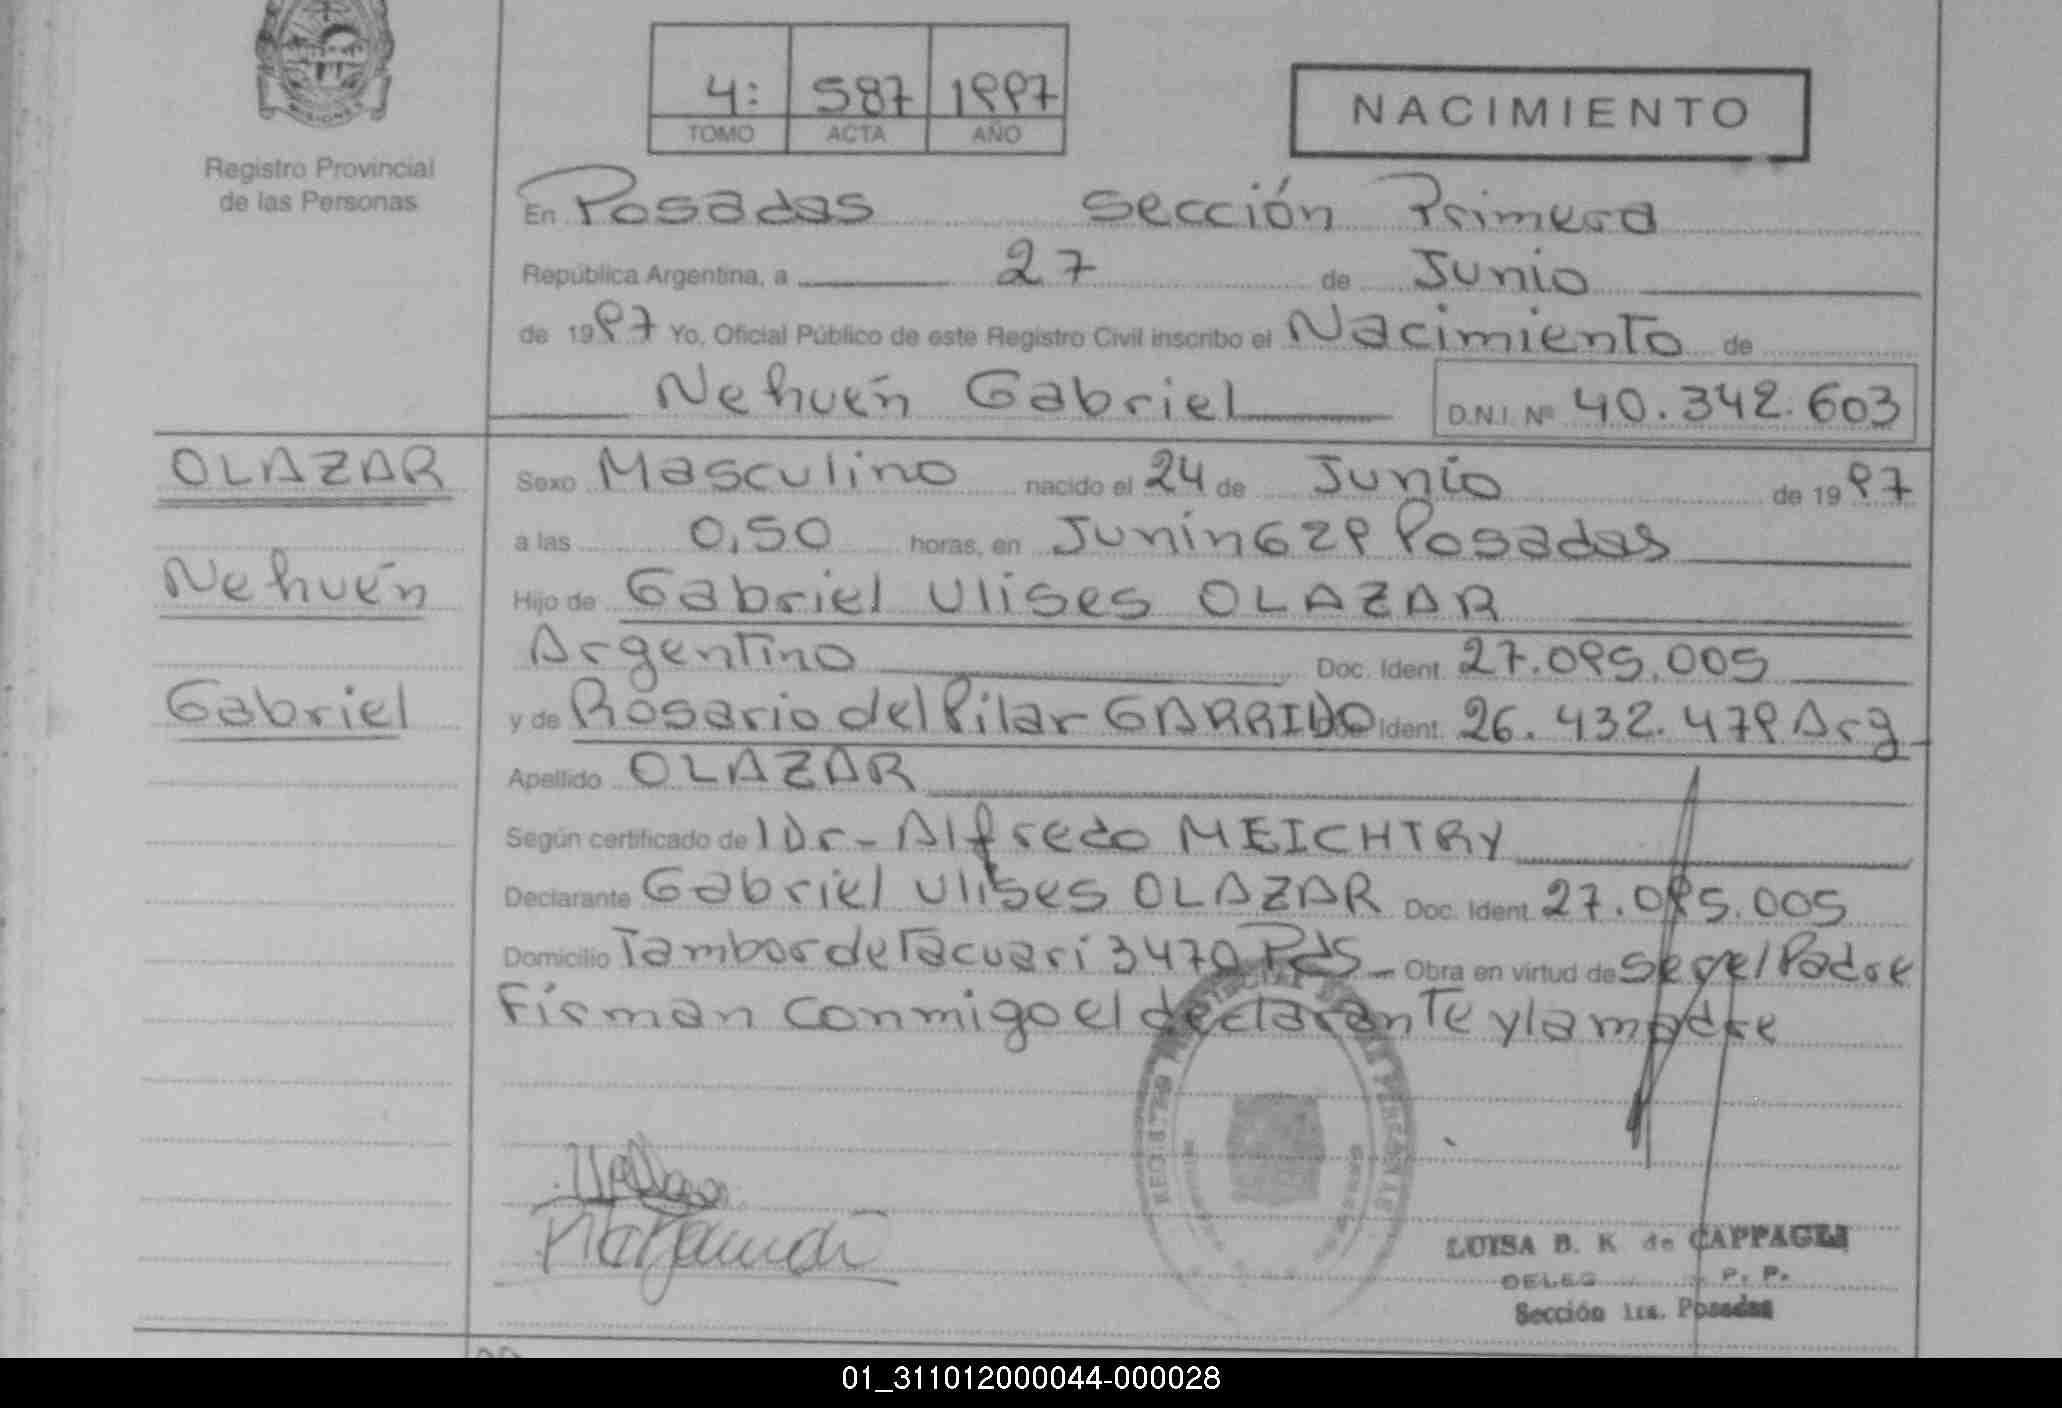 MISIONES
Registro Provincial
de las Personas
4: 587 1997
TOMO ACTA AÑO
NACIMIENTO
En Posadas sección Primera
República Argentina, a 27 de Junio
de 1997 Yo, Oficial Público de este Registro Civil inscribo el Nacimiento de
Nehuén Gabriel D.N.I. Nº 40.342.603
OLAZAR
Nehuén
Gabriel
Sexo Masculino nacido el 24 de Junio de 1997
a las 0,50 horas, en Junín 629 Posadas
Hijo de Gabriel Ulises OLAZAR
Argentino Doc. Ident. 27.095.005
y de Rosario del Pilar GARRIDO Doc. Ident. 26.432.479 Arg
Apellido OLAZAR
Según certificado de l Dr- Alfredo MEICHTRY
Declarante Gabriel Ulises OLAZAR Doc. Ident. 27.095.005
Domicilio Tambor de Tacuarí 3470 Pds - Obra en virtud de ser el Padre
Firman conmigo el declarante y la madre
LUISA B. K de CAPPAGLI
DELEG P. P.
Sección 1ra. Posadas
01_311012000044-000028